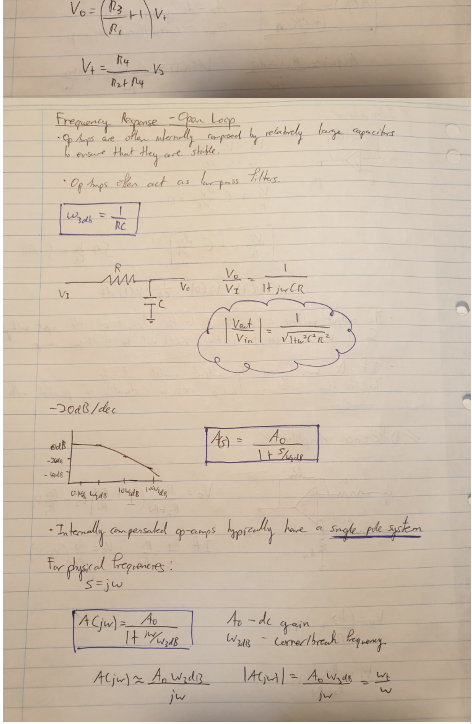 V₀ = (R₃/R₁ + 1) V₊
V₊ = R₄/(R₂+R₄) V₂
Frequency Response - Open Loop
· Op Amps are often internally composed by relatively large capacitors
to ensure that they are stable.
· Op Amps often act as low-pass filters.
ω₃dB = 1/RC
R
V_I
V₀
C
V₀/V_I = 1/(1+jωCR)
|Vout/Vin| = 1/√(1+ω²C²R²)
-20dB/dec
0dB
-20dB
-40dB
A(s) = A₀/(1 + s/ω₃dB)
· Internally compensated op-amps typically have a single pole system
For physical frequencies:
s=jω
A(jω) = A₀/(1+ jω/ω₃dB)
A₀ - dc gain
ω₃dB - corner/break frequency
A(jω) ≈ A₀ω₃dB/jω
|A(jω)| = A₀ω₃dB/jω = ωt/ω